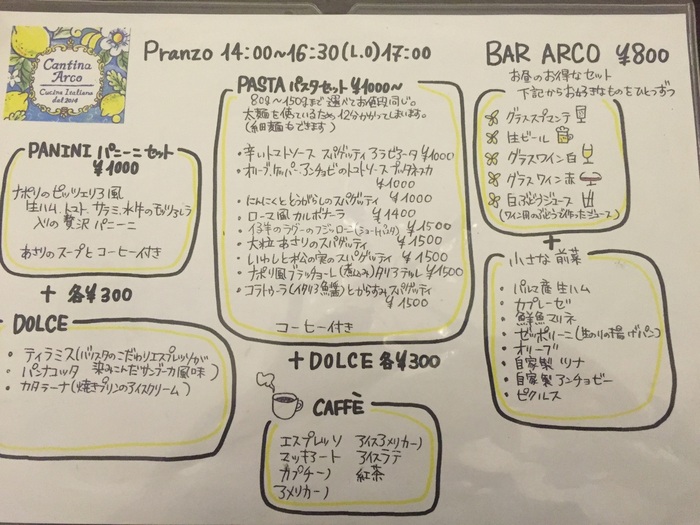 Cantina
Arco
Cucina Italiana
dal 2014
Pranzo 14:00~16:30(L.O)17:00
BAR ARCO ¥800
お昼のお得なセット
下記からお好きなものをひとつずつ
グラススプマンテ
生ビール
グラスワイン白
グラスワイン赤
白ぶどうジュース
(ワイン用のぶどうで作ったジュース)
+
小さな前菜
・パルマ産生ハム
・カプレーゼ
・鮮魚マリネ
・ゼッポリーニ(生のりの揚げパン)
・オリーブ
・自家製ツナ
・自家製アンチョビー
・ピクルス
PASTA パスタセット ¥1000~
80g~150gまで選べてお値段同じ。
太麺を使っているため12分かかってしまいます。
(細麺もできます)
・辛いトマトソース スパゲッティアラビアータ ¥1000
・オリーブ、ケッパー、アンチョビのトマトソース プッタネスカ
¥1000
・にんにくととうがらしのスパゲッティ ¥1000
・ローマ風カルボナーラ ¥1400
・イタリア牛のラグーのフジッローニ(ショートパスタ) ¥1500
・大粒あさりのスパゲッティ ¥1500
・いわしと松の実のスパゲッティ ¥1500
・ナポリ風ブラッチョーレ(煮込み)タリアテッレ ¥1500
・コラトゥーラ(イタリア魚醤)とからすみスパゲッティ
¥1500
コーヒー付き
+DOLCE 各¥300
PANINI パニーニセット
¥1000
ナポリのピッツェリア風
生ハム、トマト、サラミ、水牛のモッツァレラ
入りの贅沢パニーニ
あさりのスープとコーヒー付き
+ 各¥300
DOLCE
・ティラミス(バリスタのこだわりエスプレッソが
・パンナコッタ 染みこんだサンブーカ風味)
・カタラーナ(焼きプリンのアイスクリーム)
CAFFÈ
エスプレッソ アイスアメリカーノ
マッキアート アイスラテ
カプチーノ 紅茶
アメリカーノ